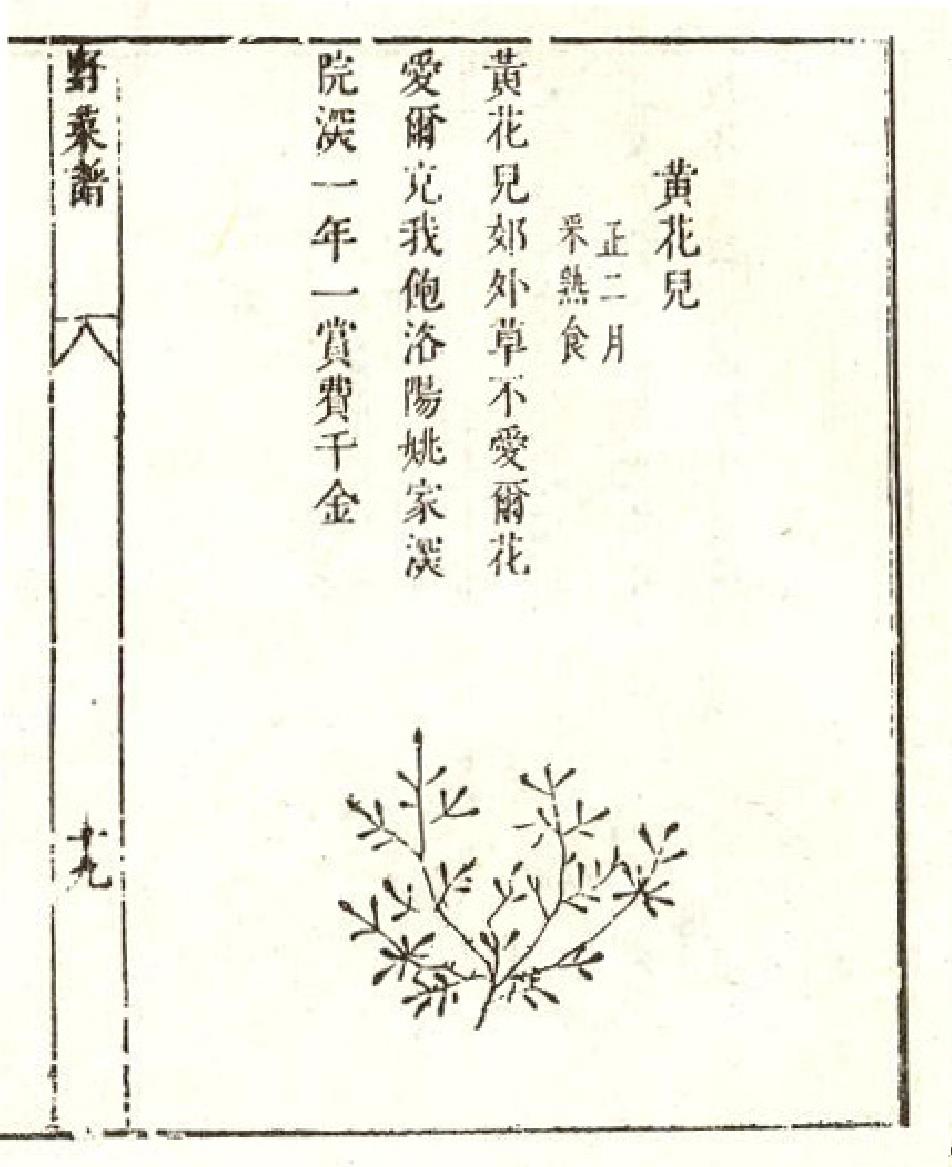 黄花兒
正二月
采熟食
黃花兒郊外草不愛爾花
愛爾充我飽洛陽姚家深
院深一年一賞費千金
野菜譜
十九